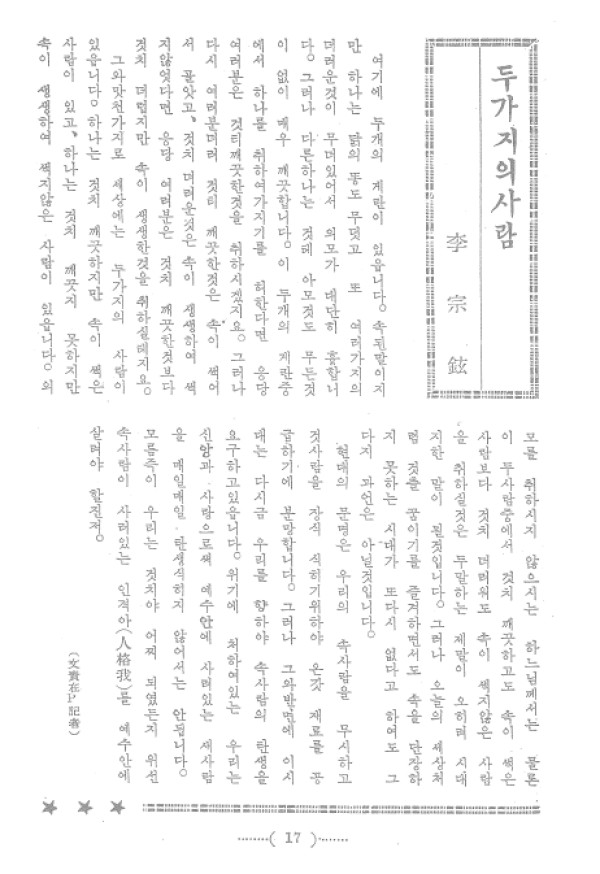 두가지의사람
李宗鉉
여기에 두개의 계란이 있읍니다。속된말이지
만 하나는 닭의 똥도 무덧고 또 여러가지의
더러운것이 무더있어서 외모가 대단히 흉합니
다。그러나 다른하나는 것헤 아모것도 무든것
이 없이 매우 깨끗합니다。이 두개의 계란중
에서 하나를 취하여가지기를 허한다면 응당
여러분은 것티깨끗한것을 취하시겠지요。그러나
다시 여러분더러 것티 깨끗한것은 속이 썩어
서 골앗고、것치 더러운것은 속이 생생하여 썩
지않엇다면 응당 여러분은 것치 깨끗한것보다
것치 더럽지만 속이 생생한것을 취하실테지요。
그와맛찬가지로 세상에는 두가지의 사람이
있읍니다。하나는 것치 깨끗하지만 속이 썩은
사람이 있고、하나는 것치 깨끗지 못하지만
속이 생생하여 썩지않은 사람이 있읍니다。외
모를 취하시지 않으시는 하느님께서는 물론
이 두사람중에서 것치 깨끗하고도 속이 썩은
사람보다 것치 더러워도 속이 썩지않은 사람
을 취하실것은 두말하는 제말이 오히려 시대
지한 말이 될것입니다。그러나 오늘의 세상처
럼 것츨 꿈이기를 즐겨하면서도 속을 단장하
지 못하는 시대가 또다시 없다고 하여도 그
다지 과언은 아닐것입니다。
현대의 문명은 우리의 속사람을 무시하고
것사람을 장식 식히기위하야 온갓 재료를 공
급하기에 분망합니다。그러나 그와반면에 이시
대는 다시금 우리를 향하야 속사람의 탄생을
요구하고있읍니다。위기에 처하여있는 우리는
신앙과 사랑으로써 예수안에 사러있는 새사람
을 매일매일 탄생식히지 않어서는 안됩니다。
모름즉이 우리는 것치야 어찌 되였든지 위선
속사람이 사러있는 인격아(人格我)를 예수안에
살려야 할진저。
(文責在P記者)
( 17 )